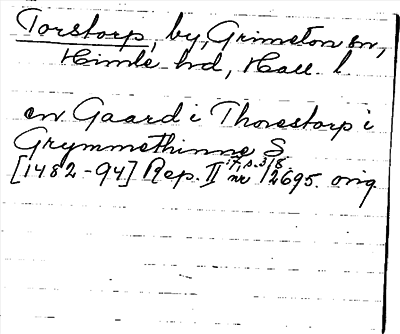 Torstorp, by, Grimeton sn,
Himle hd, Hall. l.
en Gaard i Thorestorp i
Grymmethinne S
[1482-94] Rep. II 17, s. 318 nr 12695. orig